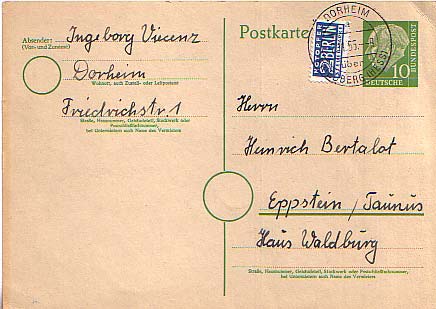 Absender:
(Vor- und Zuname)
Ingeborg Vicenz
Dorheim
Wohnort, auch Zustell- oder Leitpostamt
Friedrichstr. 1
Straße, Hausnummer, Gebäudeteil, Stockwerk oder
Postschließfachnummer,
bei Untermietern auch Name des Vermieters
Postkarte
NOTOPFER
2 BERLIN
STEUERMARKE
DORHEIM
10
DEUTSCHE
BUNDESPOST
Herrn
Heinrich Bertalot
Eppstein / Taunus
Haus Waldburg
Straße, Hausnummer, Gebäudeteil, Stockwerk oder Postschließfachnummer,
bei Untermietern auch Name des Vermieters